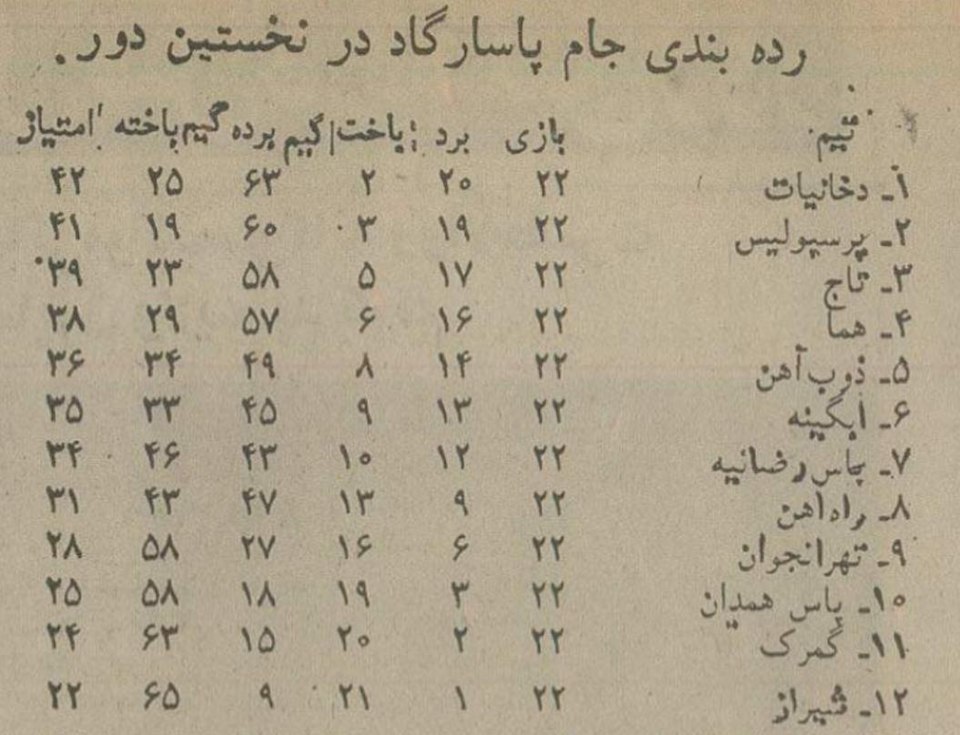 رده بندی جام پاسارگاد در نخستین دور.
تیم بازی برد باخت گیم برده گیم باخته امتیاز
۱ـ دخانیات ۲۲ ۲۰ ۲ ۶۳ ۲۵ ۴۲
۲ـ پرسپولیس ۲۲ ۱۹ ۳ ۶۰ ۱۹ ۴۱
۳ـ تاج ۲۲ ۱۷ ۵ ۵۸ ۲۳ ۳۹
۴ـ هما ۲۲ ۱۶ ۶ ۵۷ ۲۹ ۳۸
۵ـ ذوب آهن ۲۲ ۱۴ ۸ ۴۹ ۳۴ ۳۶
۶ـ ابگینه ۲۲ ۱۳ ۹ ۴۵ ۳۳ ۳۵
۷ـ پاس رضائیه ۲۲ ۱۲ ۱۰ ۴۳ ۴۶ ۳۴
۸ـ راه اهن ۲۲ ۹ ۱۳ ۴۷ ۴۳ ۳۱
۹ـ تهرانجوان ۲۲ ۶ ۱۶ ۲۷ ۵۸ ۲۸
۱۰ـ پاس همدان ۲۲ ۳ ۱۹ ۱۸ ۵۸ ۲۵
۱۱ـ گمرک ۲۲ ۲ ۲۰ ۱۵ ۶۳ ۲۴
۱۲ـ شیراز ۲۲ ۱ ۲۱ ۹ ۶۵ ۲۲